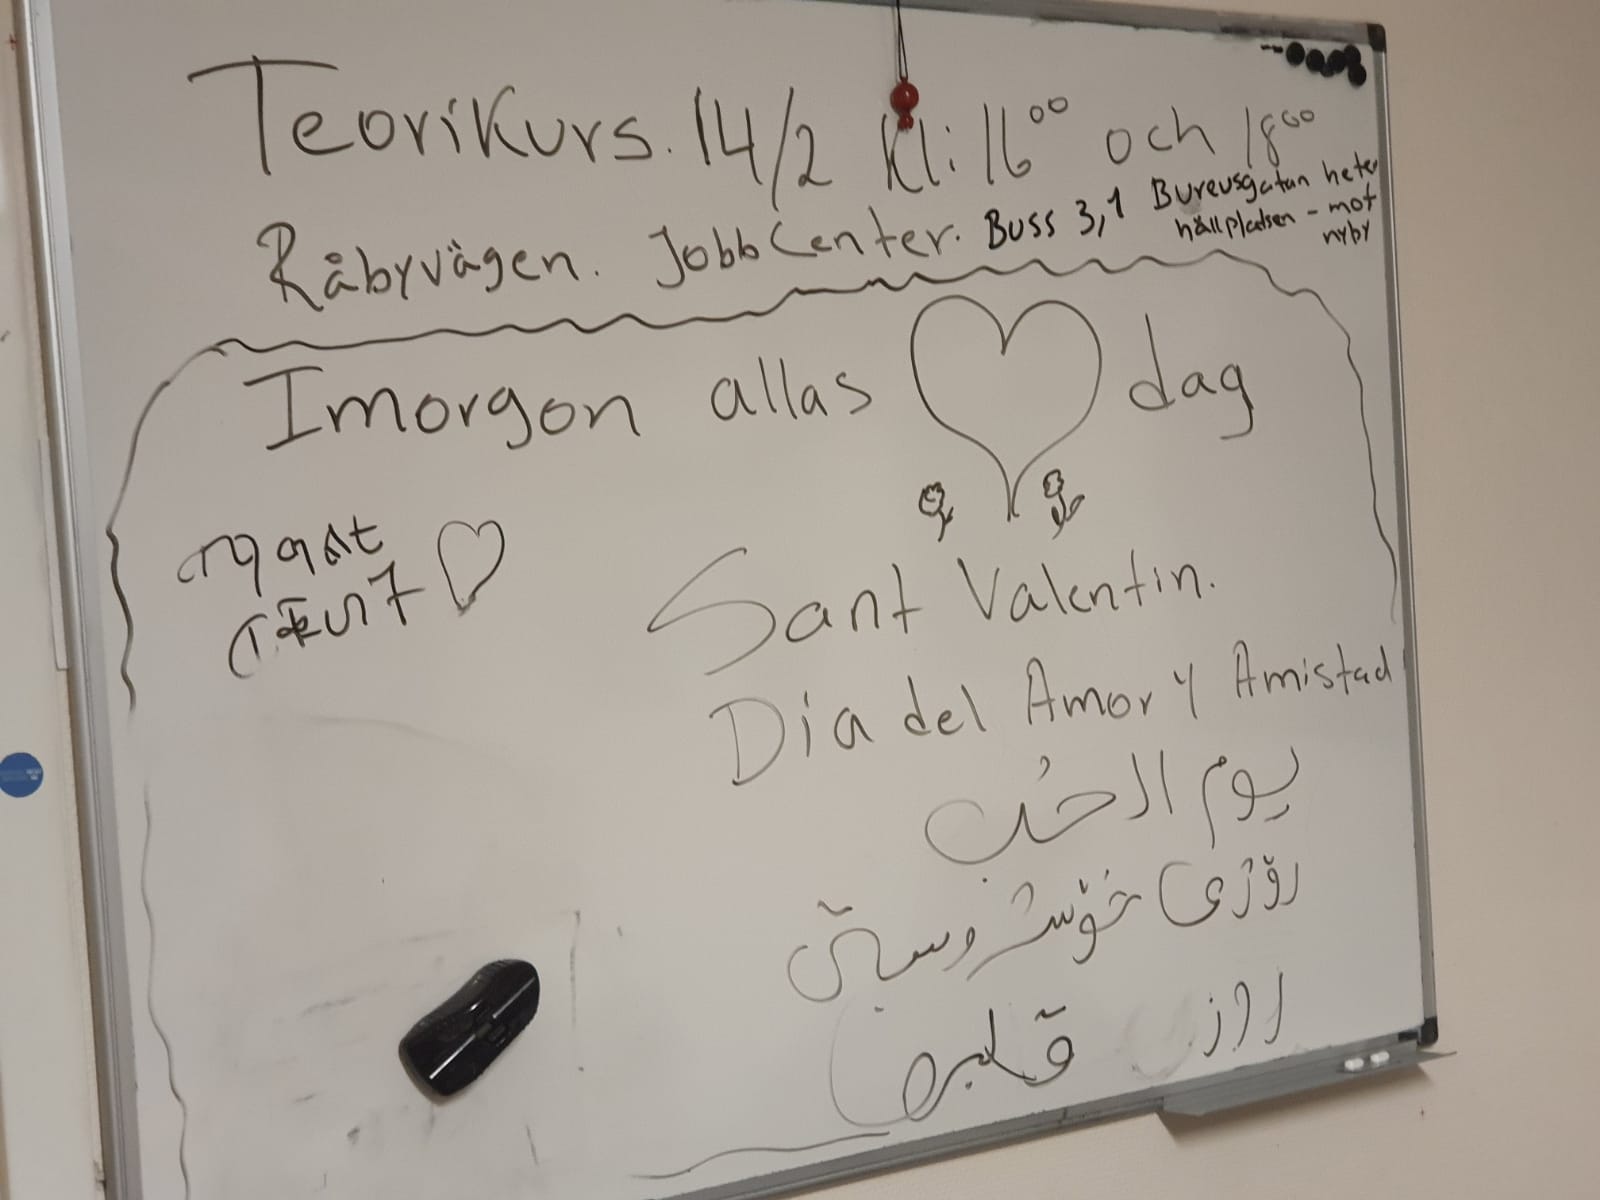 Teorikurs. 14/2 kl: 16⁰⁰ och 18⁰⁰
Råbyvägen. JobbCenter. Buss 3,1 Bureusgatan heter
hållplatsen - mot
nyby
Imorgon allas ♡ dag
Sant Valentin.
Dia del Amor y Amistad
يوم الحُب
رۆژی خۆشەوستی
روز قلبها